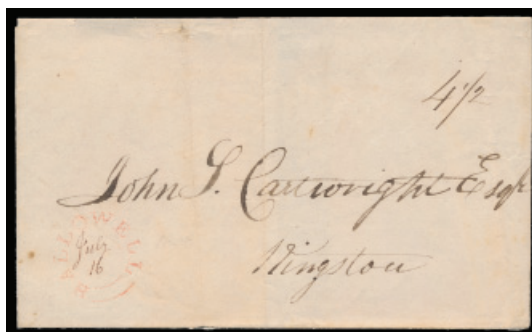 4 1/2
John S. Cartwright Esqr
Kingston
HALLOWELL
July
16